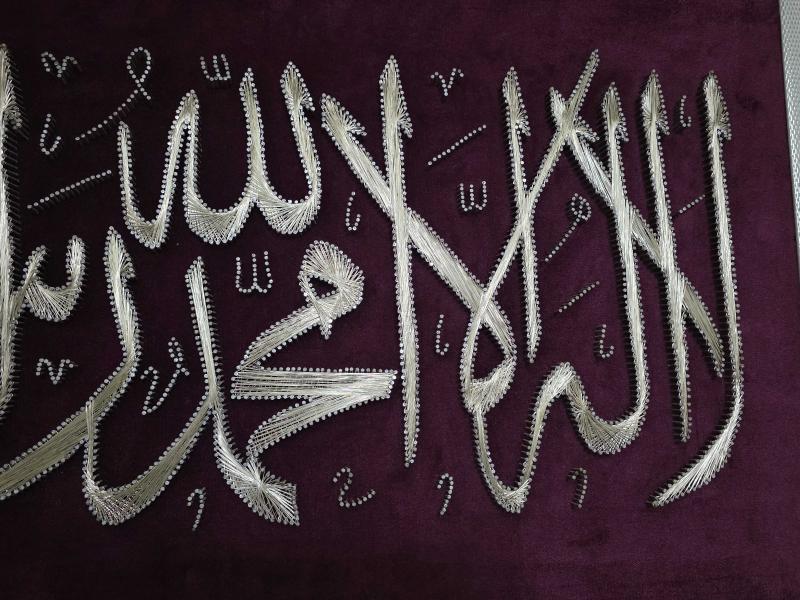 لا إله إلا الله محمد